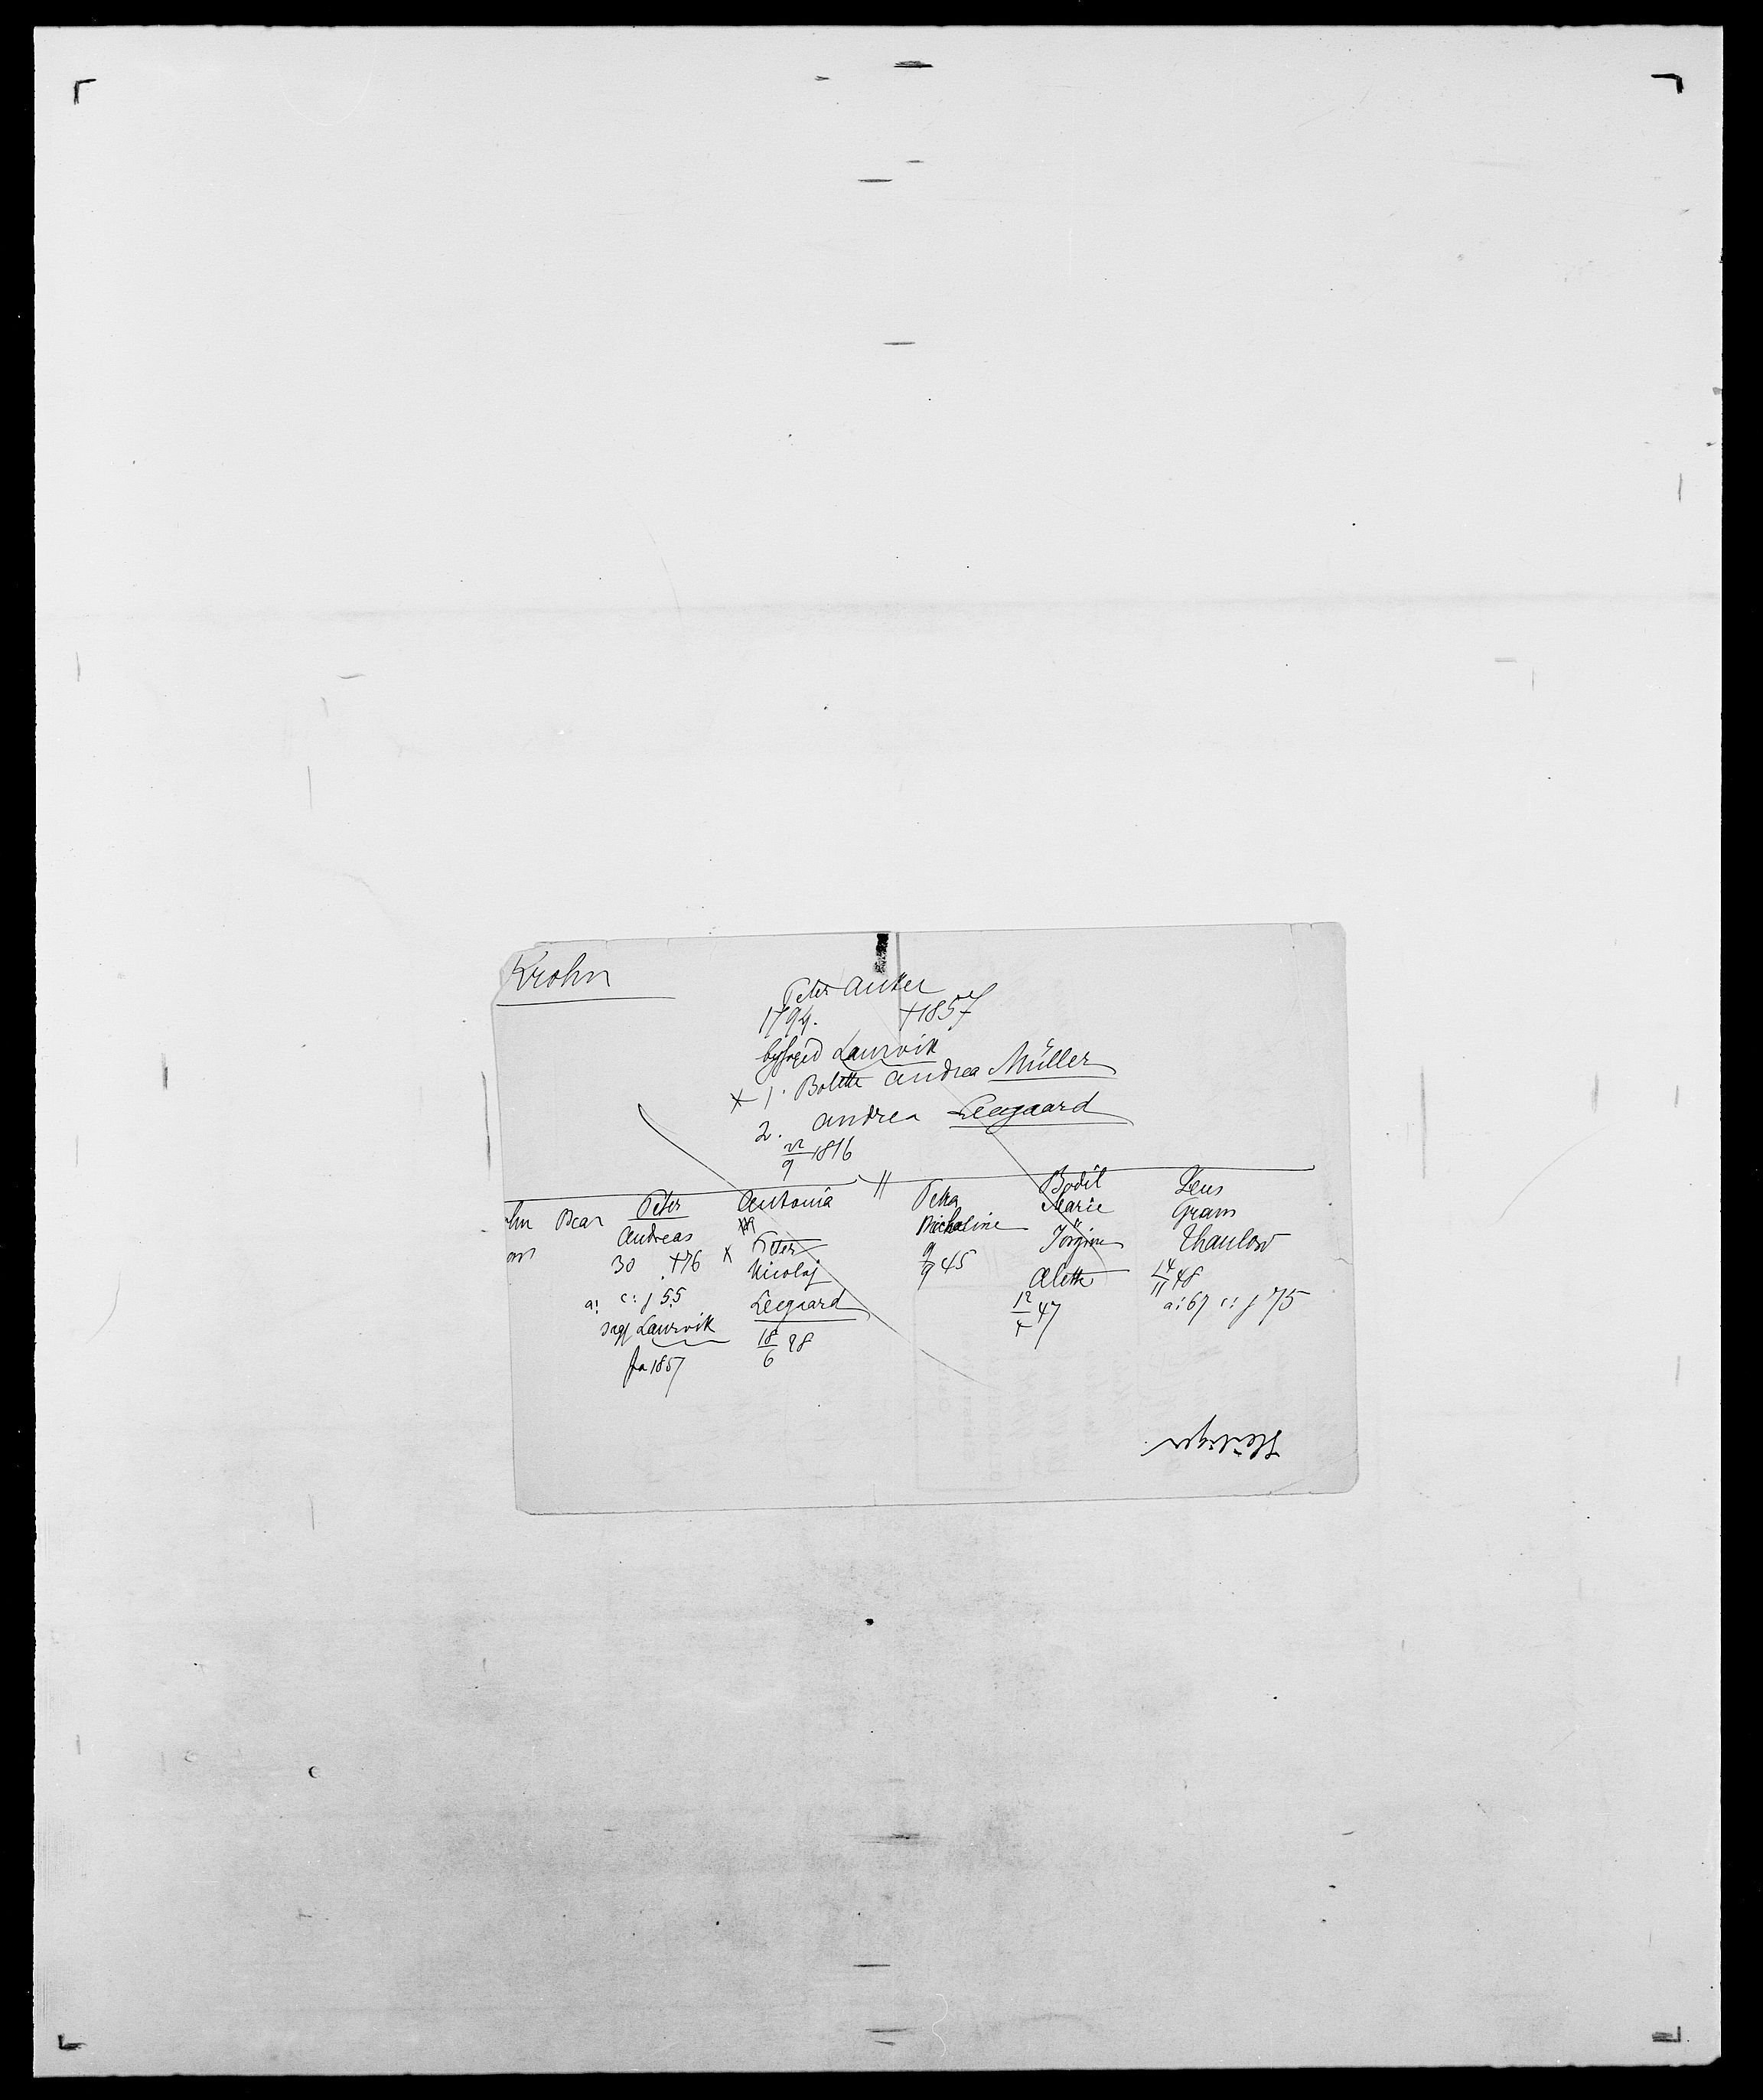 Krohn
Peter Anker
1794. †1857
byfoged Laurvik
x 1. Bolette Andrea Müller
2. Andrea Leegaard
22/9 1816
Peter
Andreas
30 †76
a: c: j 55
sagf Laurvik
fra 1857
Antonia
x Peter
Nicolaj
Leegaard
18/6 28
//
Petra
Michaline
9/9 45
Bodil
Marie
Jörgine
Alette
12/4 47
Jens
Gram
Thaulow
14/11 48
a: 67 c: j 75